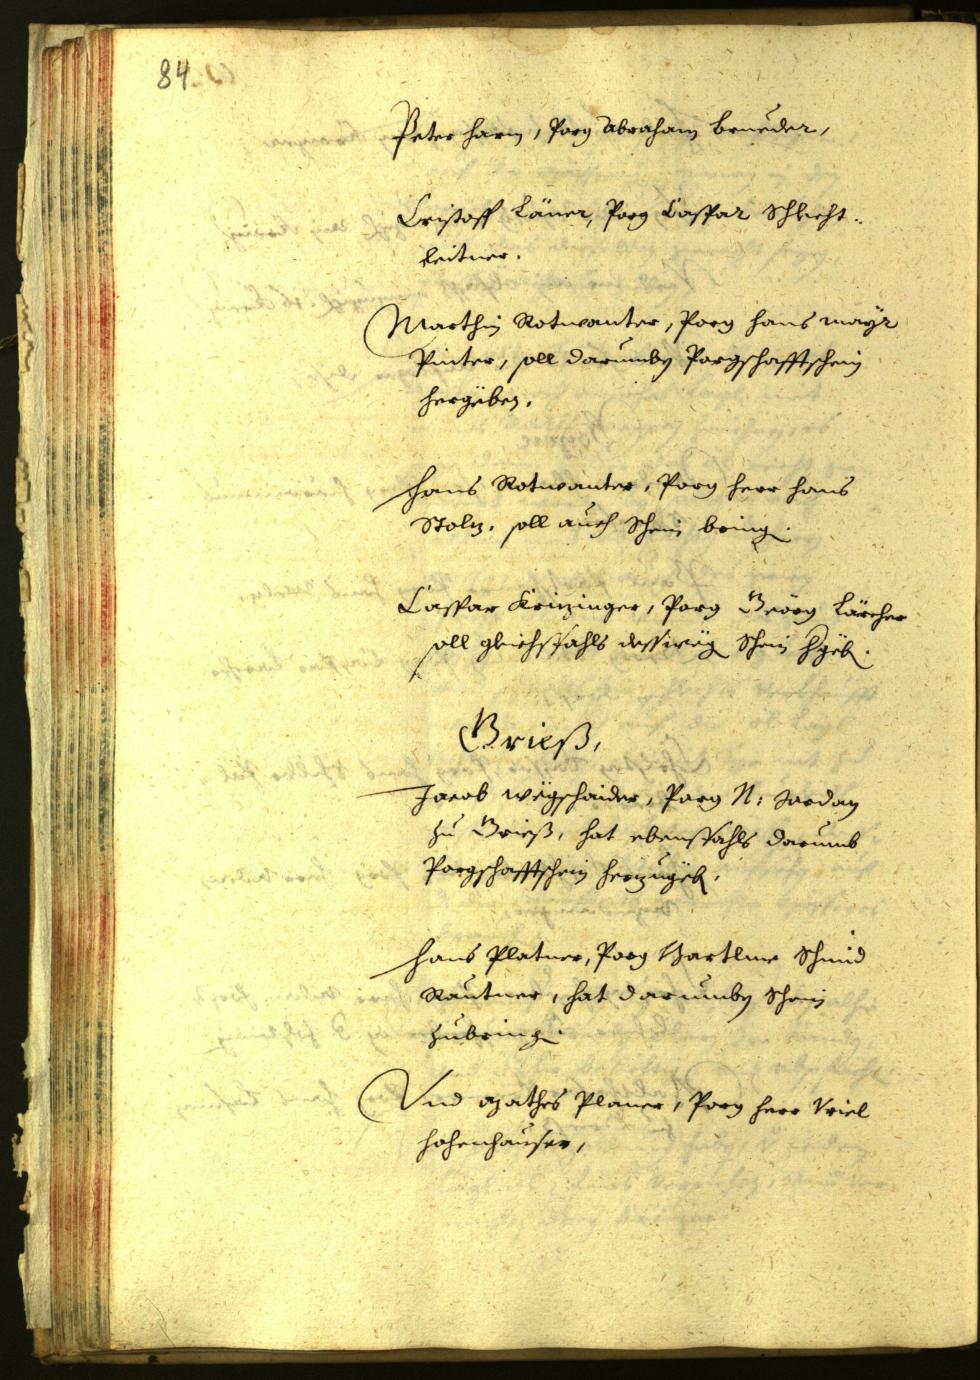 84
Peter harm, Porg Abraham Brueder,
Cristoff Läner, Porg Caspar Schlecht-
leitner.
Marthin Rotwanter, Porg hans mayr
Pinter, soll darumben Porgschafftschein
hergeben.
Hans Rotwanter, Porg herr hans
Stolz. soll auch Schein bring.
Caspar Krinzinger, Porg Geörg Lärcher
soll gleichsfahls Schein
Grieß,
Jacob Wegschaider, Porg N: Jordan
zu Grieß, hat ebensfahls darumb
Porgschafftschein herzugeb.
Hans Platner, Porg Bartlme Schmid
Rautner, hat darumben Schein
zubring.
Vnd Mathes Planer, Porg herr Vriel
hohenhauser,